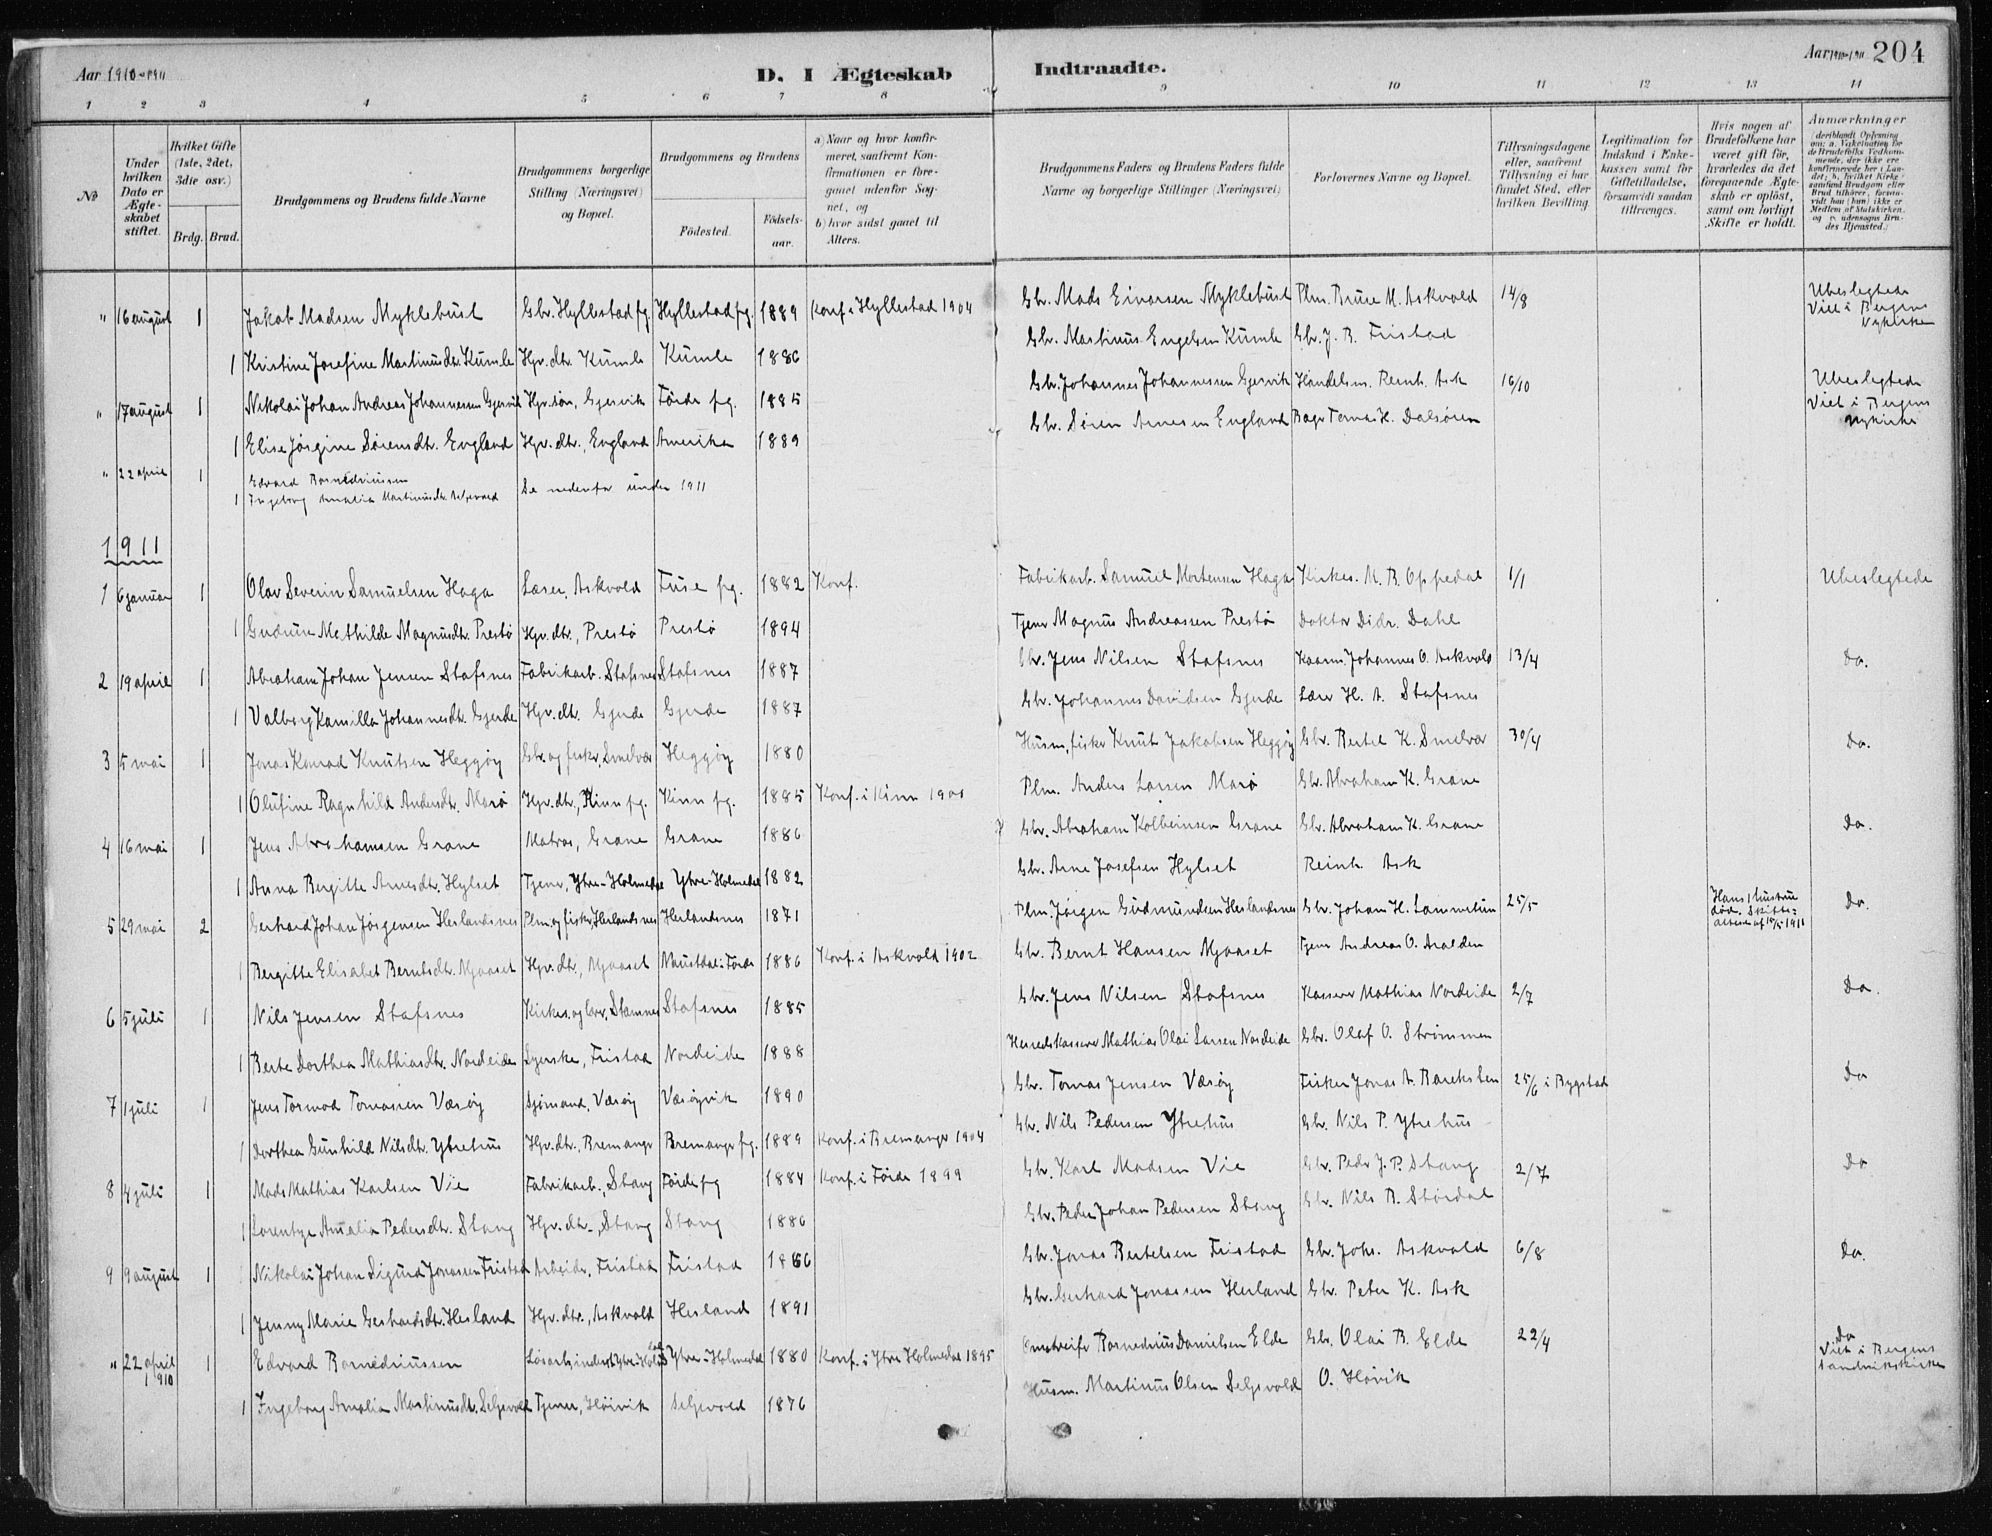 Aar 1910-1911
D. I Ægteskab Indtraadte.
Aar 1910-1911 204
1 2 3 4 5 6 7 8 9 10 11 12 13 14
No
Under hvilken Dato er Ægteskabet stiftet.
Hvilket Gifte (1ste, 2det, 3die osv.)
Brdg. Brud.
Brudgommens og Brudens fulde Navne
Brudgommens borgerlige Stilling (Næringsvei) og Bopæl.
Brudgommens og Brudens
Fødested.
Fødselsaar.
a) Naar og hvor konfirmeret, saafremt Konfirmationen er foregaaet udenfor Sognet, og
b) hvor sidst gaaet til Alters.
Brudgommens Faders og Brudens Faders fulde Navne og borgerlige Stillinger (Næringsvei)
Forlovernes Navne og Bopæl.
Tillysningsdagene eller, saafremt Tillysning ei har fundet Sted, efter hvilken Bevilling.
Legitimation for Indskud i Enkekassen samt for Giftetilladelse, forsaavidt saadan tiltrænges.
Hvis nogen af Brudefolkene har været gift før, hvorledes da det foregaaende Ægteskab er opløst, samt om lovligt Skifte er holdt.
Anmærkninger (deriblandt Oplysning om: a. Vakcination for de Brudefolks Vedkommende, der ikke ere konfirmerede her i Landet; b. hvilket Kirkesamfund Brudgom eller Brud tilhører, forsaavidt han (hun) ikke er Medlem af Statskirken, og c. udensogns Brudes Hjemsted.)
" 16 august 1 Jakob Madsen Myklebust Gbr. Hyllestad pg. Hyllestad pg. 1889 Konf. i Hyllestad 1904 Gbr. Mads Eivorsen Myklebust Plm. Brure M. Askvold 14/8 Ubeslegtede Viet i Bergens Nykirke
1 Kristine Josefine Martinusdtr. Kumle Hpr. dtr. Kumle Kumle 1886 Gbr. Martinus Engelsen Kumle Gbr. J. B. Fristad
" 17 august 1 Nikolai Johan Andreas Johannessen Gjersvik Hpr. søn, Gjersvik Førde pg. 1885 Gbr. Johannes Johannessen Gjersvik Handelsm. Reinh. Ask 16/10 Ubeslegtede Viet i Bergens Nykirke
1 Elise Jørgine Sørensdtr. England Hpr. dtr., England Amerika 1889 Gbr. Søren Arnesen England H. Dalsøren
" 22 april 1 Edvard Rasmedriussen
1 Ingeborg Amalia Martinusdtr. Selsvold Se nedenfor under 1911
1911
1 6 januar 1 Olav Severin Samuelsen Haga Læser, Askvold Fuse pg. 1882 Konf. Fabrikarb. Samuel Mortensen Haga Kirkes. M. B. Oppedal 1/1 Ubeslegtede
1 Gudrun Mathilde Magnusdtr. Prestø Hpr. dtr., Prestø Prestø 1894 Tjener Magnus Andreassen Prestø Doktor Didr. Dahl
2 19 april 1 Abraham Johan Jensen Stafsnes Fabrikarb. Stafsnes Stafsnes 1887 Gbr. Jens Nilsen Stafsnes Kaarm. Johannes O. Askvold 13/4 Do.
1 Valborg Kamilla Johannesdtr. Gjerde Hpr. dtr. Gjerde Gjerde 1887 Gbr. Johannes Davidsen Gjerde Lærer H. A. Stafsnes
3 5 mai 1 Jonas Konrad Knutsen Heggøy Gbr. og fisker, Smelvær Heggøy 1880 Husm., fisker Knut Jakobsen Heggøy Gbr. Bertel K. Smelvær 30/4 Do.
1 Olufine Ragnhild Andersdtr. Marø Hpr. dtr., Kinn pg. Kinn pg. 1885 Konf. i Kinn 1900 Plm. Anders Larsen Marø Gbr. Abraham K. Grane
4 16 mai 1 Jens Abrahamsen Grane Matros, Grane Grane 1886 Gbr. Abraham Kolbeinsen Grane Gbr. Abraham K. Grane Do.
1 Anna Bergitte Arnesdtr. Hylset Tjener, Ytre-Holmedal Ytre-Holmedal 1882 Gbr. Arne Josefsen Hylset Reinh. Ask
5 29 mai 2 Gerhard Johan Jørgensen Herlandsnes Plm. og fisker, Herlandsnes Herlandsnes 1871 Plm. Jørgen Gudmundsen Herlandsnes Gbr. Johan H. Lammetun 25/5 Hans 1 hustru død. Skifteattest af 15/5 1911 Do.
1 Bergitte Elisabet Berntsdtr. Mjaaset Hpr. dtr., Mjaaset Naustdal i Førde 1886 Konf. i Askvold 1902 Gbr. Bernt Hansen Mjaaset Tjener Andreas O. Aralden
6 5 juli 1 Nils Jensen Stafsnes Kirkes. og lærer, Stamnes Stafsnes 1885 Gbr. Jens Nilsen Stafsnes Kasserer Mathias Nordeide 2/7 Do.
1 Berte Dorthea Mathiasdtr. Nordeide Syerske, Fristad Nordeide 1888 Herredskasserer Mathias Olai Larsen Nordeide Gbr. Olaf O. Strømmen
7 1 juli 1 Jens Tormod Tomassen Værøy Sjømand, Værøy Værøyvik 1890 Gbr. Tomas Jensen Værøy Fisker Jonas A. Bareksten 25/6 i Bygstad Do
1 Dorthea Gunhild Nilsdtr. Ytrehus Hpr. dtr., Bremanger Bremanger pg. 1889 Konf. i Bremanger 1904 Gbr. Nils Pedersen Ytrehus Gbr. Nils P. Ytrehus
8 4 juli 1 Mads Mathias Karlsen Vie Fabrikarb., Stang Førde pg 1884 Konf. i Førde 1899 Gbr. Karl Madsen Vie Gbr. Peder J. P. Stang 2/7 Do
1 Lorentze Amalia Pedersdtr. Stang Hpr. dtr., Stang Stang 1886 Gbr. Peder Johan Pedersen Stang Gbr. Nils B. Størdal
9 9 august 1 Nikolai Johan Sigurd Jonassen Fristad Arbeider, Fristad Fristad 1886 Gbr. Jonas Bertelsen Fristad Gbr. Johs. Askvold 6/8 Do.
1 Jenny Marie Gerhardsdtr. Herland Hpr. dtr., Askvold Herland 1891 Gbr. Gerhard Jonassen Herland Gbr. Peter K. Ask
" 22 april 1910 1 Edvard Rasmedriussen Ytre-Holmedal Ytre-Holmedal 1880 Konf. i Ytre Holmedal 1895 Danielsen Elde Gbr. Olai B. Elde 22/4 Do Viet i Bergens Sandvikskirke
1 Ingeborg Amalia Martinusdtr. Selsvold Tjener, Høivik Selsvold 1876 Husm. Martinus Olsen Selsvold O. Høivik